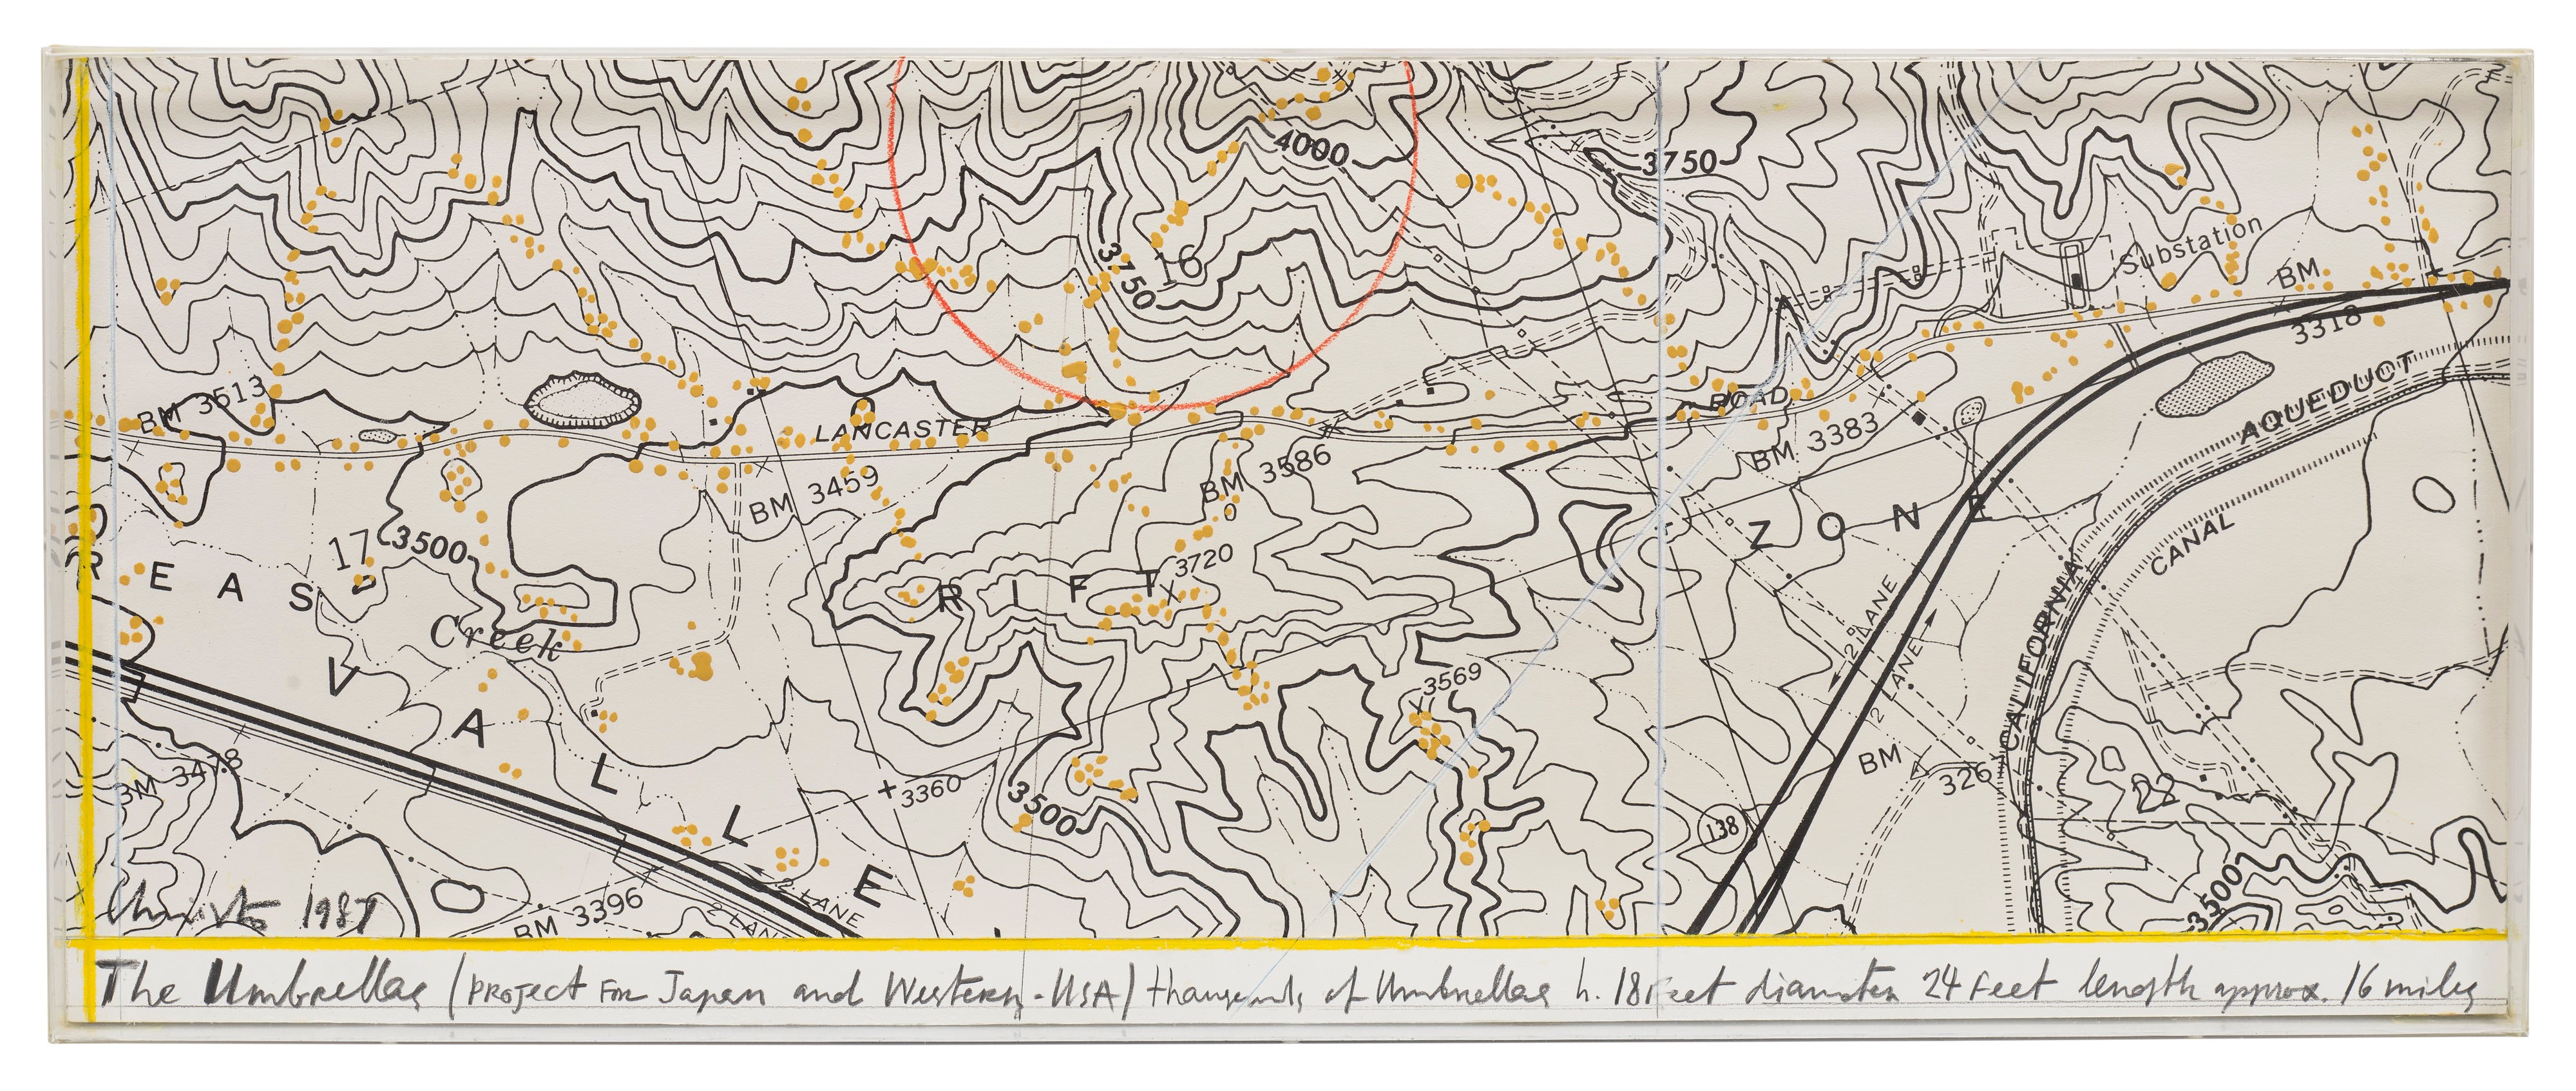 4000
3750
16
3750
Substation
BM
3318
BM 3513
LANCASTER
ROAD
AQUEDUCT
BM 3383
BM 3586
BM 3459
CANAL
ZONE
17
3500
REAS
Creek
RIFT
3720
CALIFORNIA
2 LANE
2 LANE
3569
VALLE
BM 3478
3360
3500
BM
326
22
138
3500
2 LANE
2 LANE
BM 3396
Christo 1987
The Umbrellas (PROJECT FOR Japan and Western-USA) thousands of Umbrellas h. 18 feet diameter 24 feet length approx. 16 miles